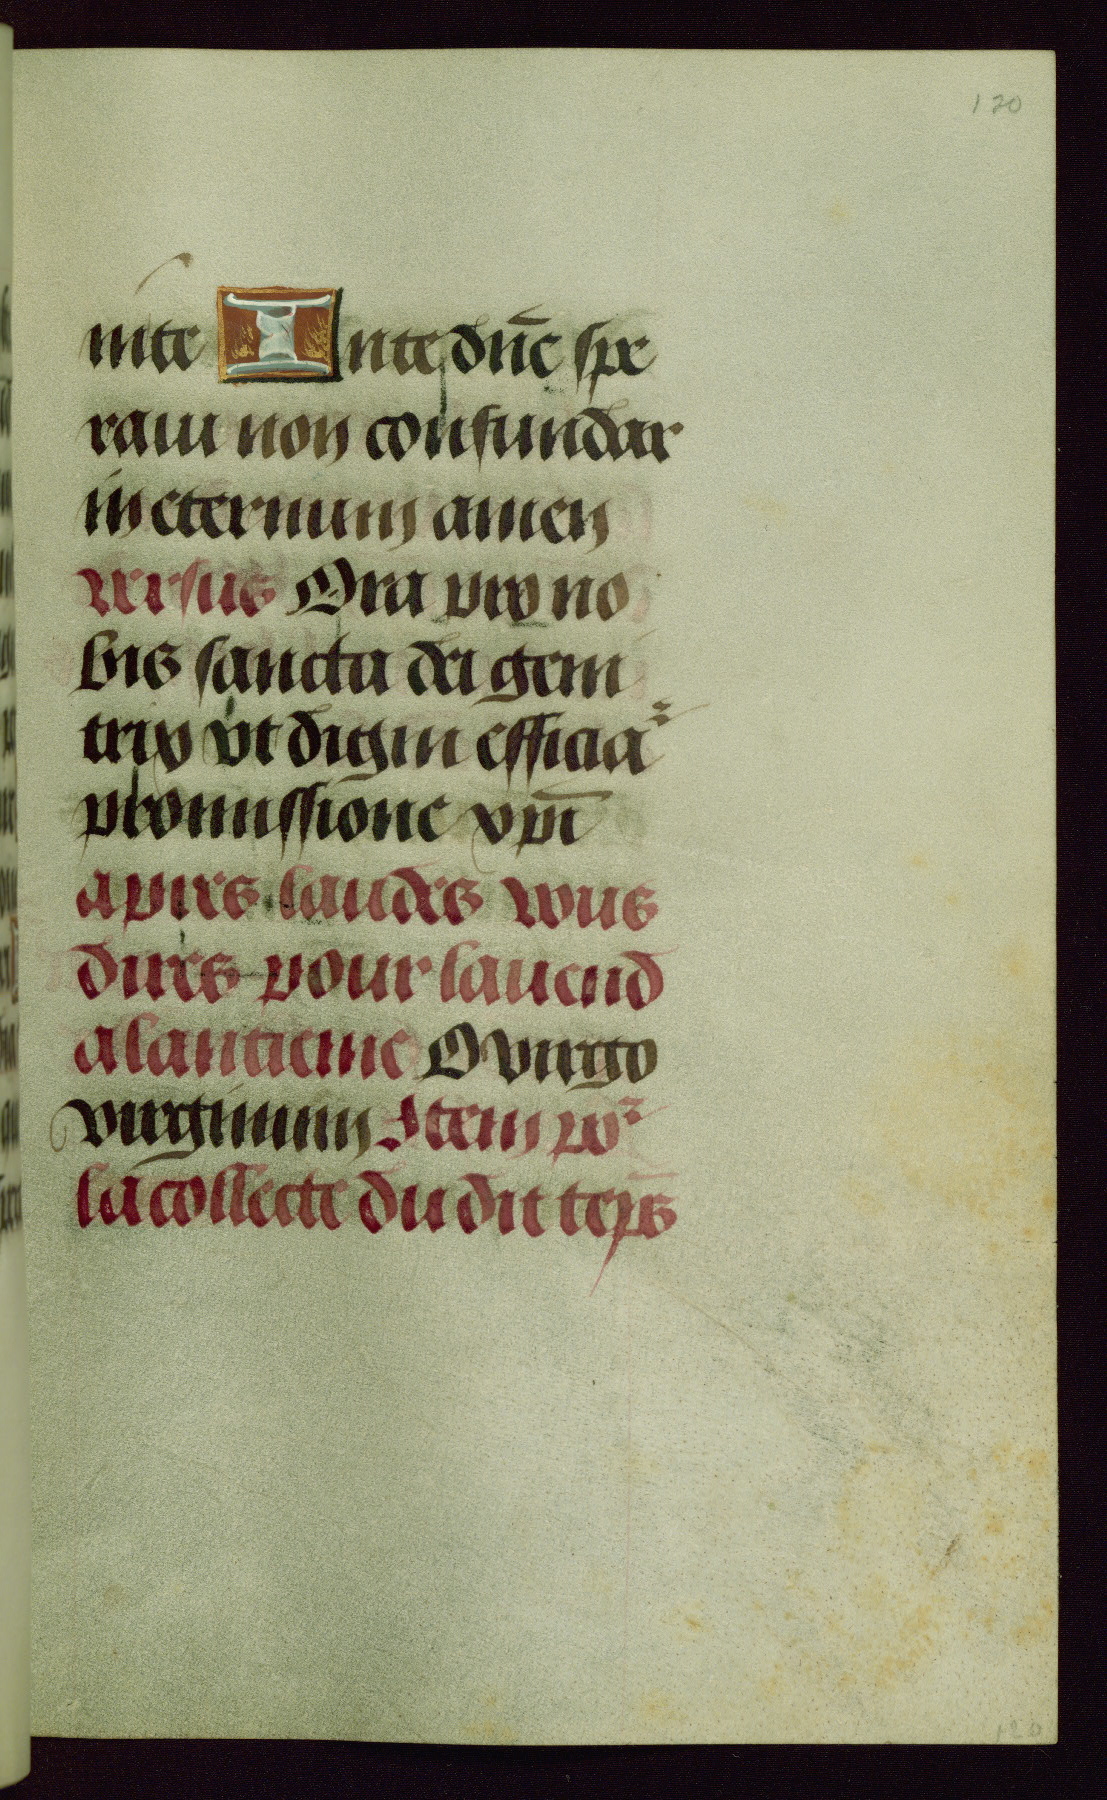 120
in te In te dn̄e spe
raui non confundar
in eternum amen
versus Ora pro no
bis sancta dei geni
trix vt digni efficia
promissione xpi̅
apres laudes vous
dires pour lauend
a lantienne O virgo
virginum Item po
la collecte du dit tēps
120